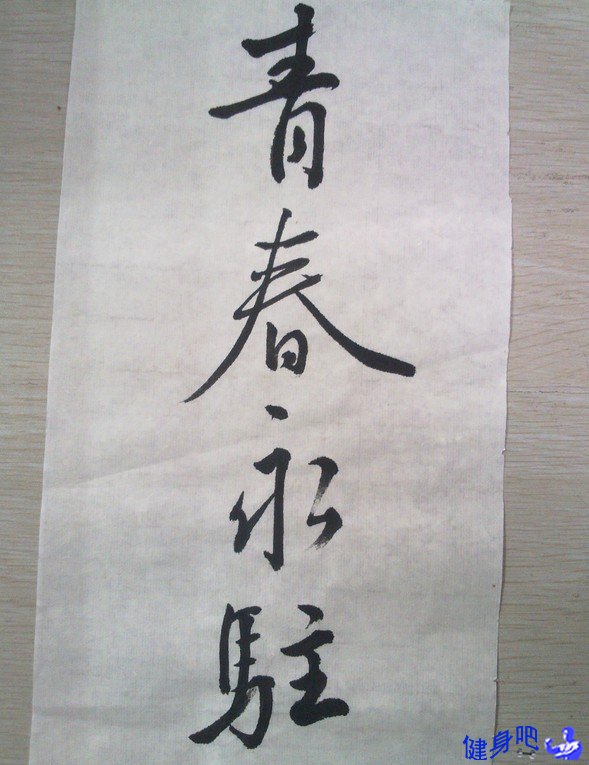 青春永駐
健身吧